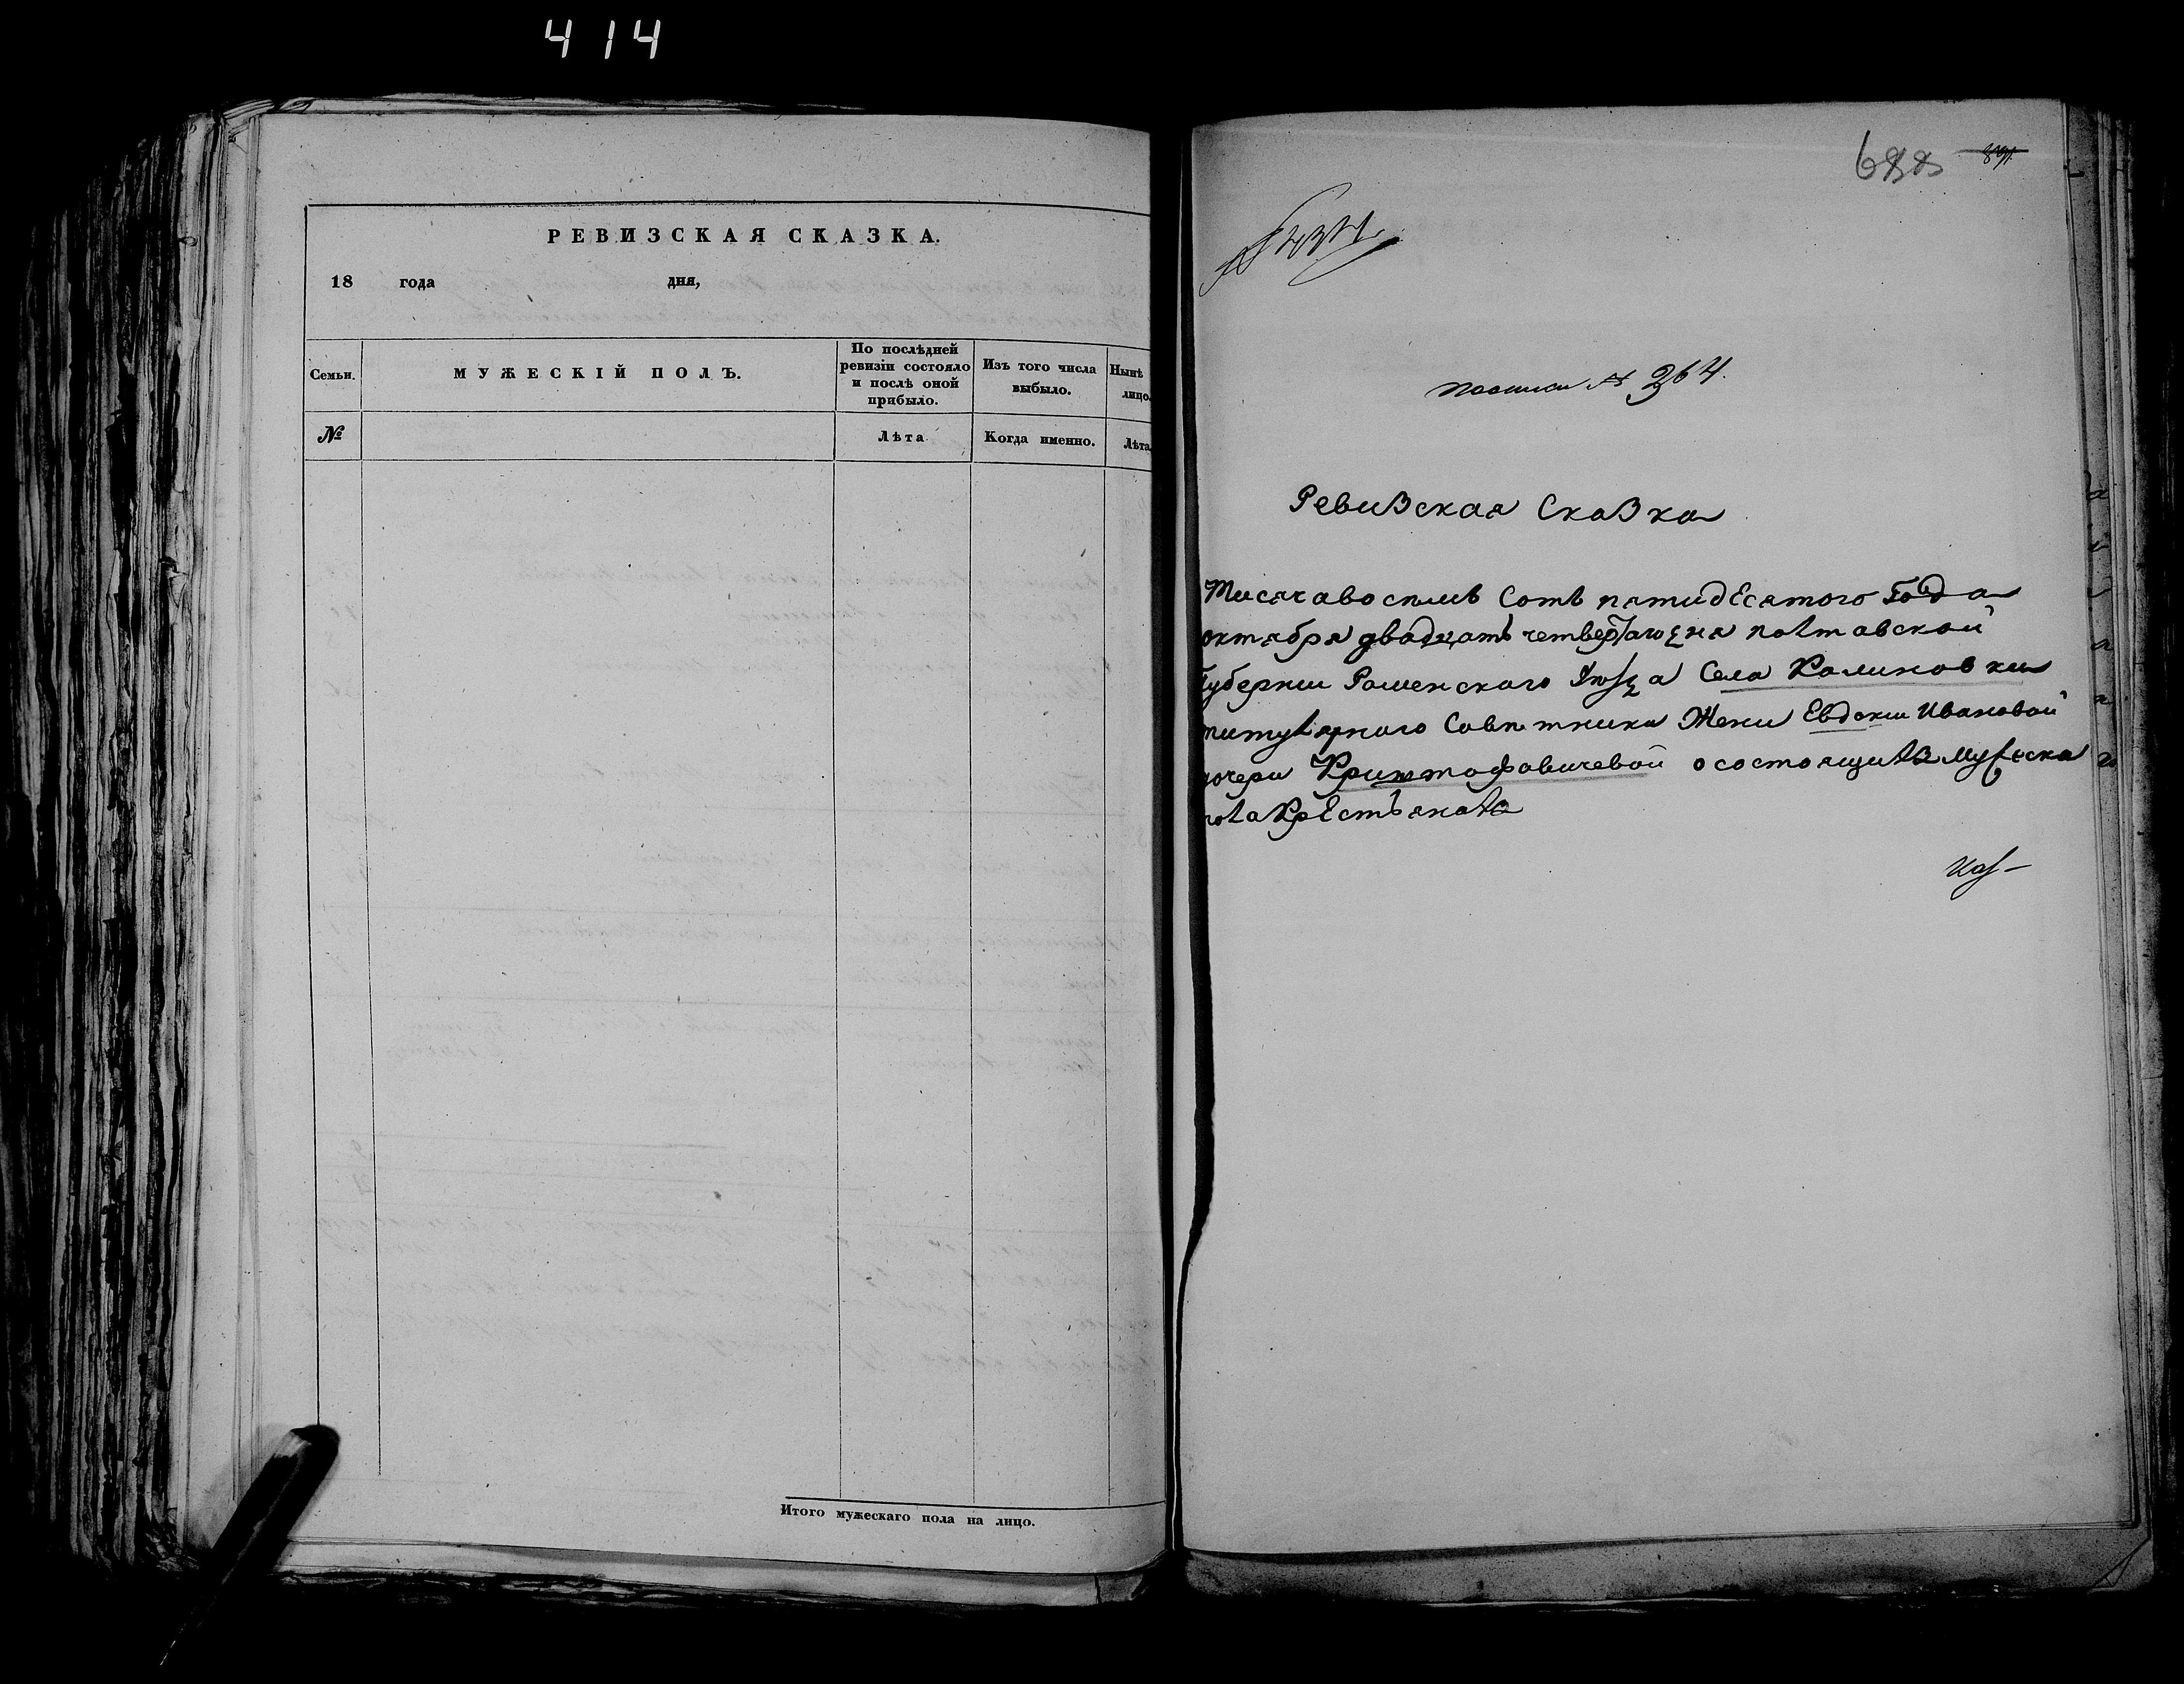 414
РЕВИЗСКАЯ СКАЗКА.
18 года дня,
Семьи.
МУЖЕСКІЙ ПОЛЪ.
По послѣдней
ревизіи состояло
и послѣ оной
прибыло.
Изъ того числа
выбыло.
Нынѣ
лицо.
№
Лѣта
Когда именно.
Лѣта
Итого мужескаго пола на лицо.
688
№ 264.
Ревизская Сказка
Тисячавосимъ Сотъ пятидесятого Года
октября двадцать четвертаго дня полтавской
Губернии Роменского Уезда Села Калиновки
титулярного Совѣтника Жени Евдокии Ивановой
дочери Криштофовичевой о состоящихъ мужеска
пола Крестьянахъ